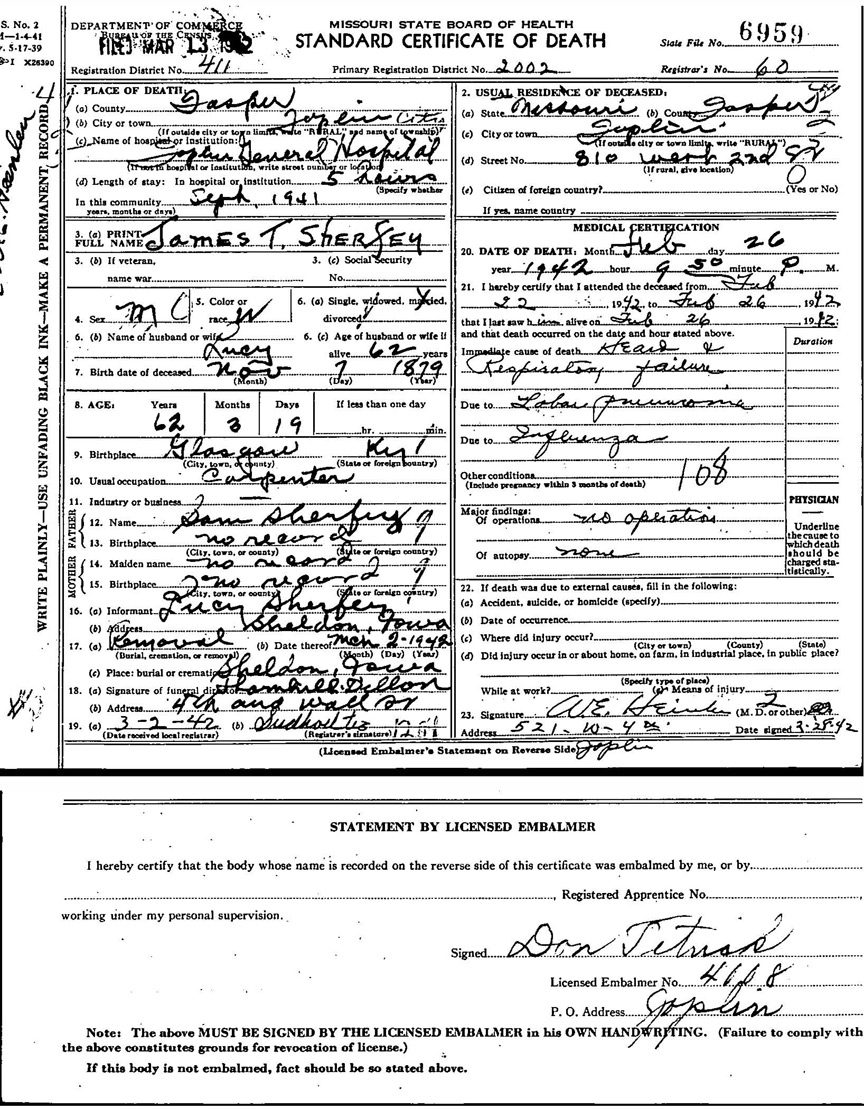 S. No. 2
M—1-4-41
v. 5-17-39
I X26390
DEPARTMENT OF COMMERCE
BUREAU OF THE CENSUS
FILED MAR 13 1942
MISSOURI STATE BOARD OF HEALTH
STANDARD CERTIFICATE OF DEATH
State File No. 6959
Registration District No. 411
Primary Registration District No. 2002
Registrar's No. 60
WRITE PLAINLY—USE UNFADING BLACK INK—MAKE A PERMANENT RECORD
1. PLACE OF DEATH:
(a) County Jasper
(b) City or town Joplin
(If outside city or town limits, write "RURAL" and name of township)
(c) Name of hospital or institution:
Joplin General Hospital
(If not in hospital or institution, write street number or location)
(d) Length of stay: In hospital or institution 5 hours
(Specify whether
In this community Sept, 1941
years, months or days)
3. (a) PRINT FULL NAME JAMES T. SHERFEY
3. (b) If veteran, name war
3. (c) Social Security No.
4. Sex M
5. Color or race W
6. (a) Single, widowed, married, divorced
6. (b) Name of husband or wife Lucy
6. (c) Age of husband or wife if alive 62 years
7. Birth date of deceased Nov 7 1879
(Month) (Day) (Year)
8. AGE: Years Months Days If less than one day
62 3 19 hr. min.
9. Birthplace Glasgow Ky
(City, town, or county) (State or foreign country)
10. Usual occupation Carpenter
11. Industry or business
FATHER
12. Name Sam Sherfey
13. Birthplace no record
(City, town, or county) (State or foreign country)
MOTHER
14. Maiden name no record
15. Birthplace no record
(City, town, or county) (State or foreign country)
16. (a) Informant Lucy Sherfey
(b) Address Sheldon, Iowa
17. (a) Removal (b) Date thereof Mch 2-1942
(Burial, cremation, or removal) (Month) (Day) (Year)
(c) Place: burial or cremation Sheldon, Iowa
18. (a) Signature of funeral director Thornhill-Dillon
(b) Address 4th and Wall St
19. (a) 3-2-42 (b)
(Date received local registrar) (Registrar's signature)
2. USUAL RESIDENCE OF DECEASED:
(a) State Missouri (b) County Jasper
(c) City or town Joplin
(If outside city or town limits, write "RURAL")
(d) Street No. 810 West 2nd St
(If rural, give location)
(e) Citizen of foreign country? (Yes or No)
If yes, name country
MEDICAL CERTIFICATION
20. DATE OF DEATH: Month Feb day 26
year 1942 hour 9 50 minute P. M.
21. I hereby certify that I attended the deceased from Feb
22, 1942 to Feb 26, 1942
that I last saw him alive on Feb 26 1942
and that death occurred on the date and hour stated above.
Duration
Immediate cause of death Heart &
Respiratory failure
Due to Lobar pneumonia
Due to Influenza
Other conditions 108
(Include pregnancy within 3 months of death)
PHYSICIAN
Underline the cause to which death should be charged statistically.
Major findings:
Of operations no operation
Of autopsy none
22. If death was due to external causes, fill in the following:
(a) Accident, suicide, or homicide (specify)
(b) Date of occurrence
(c) Where did injury occur?
(City or town) (County) (State)
(d) Did injury occur in or about home, on farm, in industrial place, in public place?
(Specify type of place)
While at work? (e) Means of injury
23. Signature A.E. (M. D. or other)
Address 521-W-4th Joplin Date signed 3-28-42
(Licensed Embalmer's Statement on Reverse Side)
STATEMENT BY LICENSED EMBALMER
I hereby certify that the body whose name is recorded on the reverse side of this certificate was embalmed by me, or by
, Registered Apprentice No.
working under my personal supervision.
Signed Don
Licensed Embalmer No.
P. O. Address Joplin
Note: The above MUST BE SIGNED BY THE LICENSED EMBALMER in his OWN HANDWRITING. (Failure to comply with
the above constitutes grounds for revocation of license.)
If this body is not embalmed, fact should be so stated above.